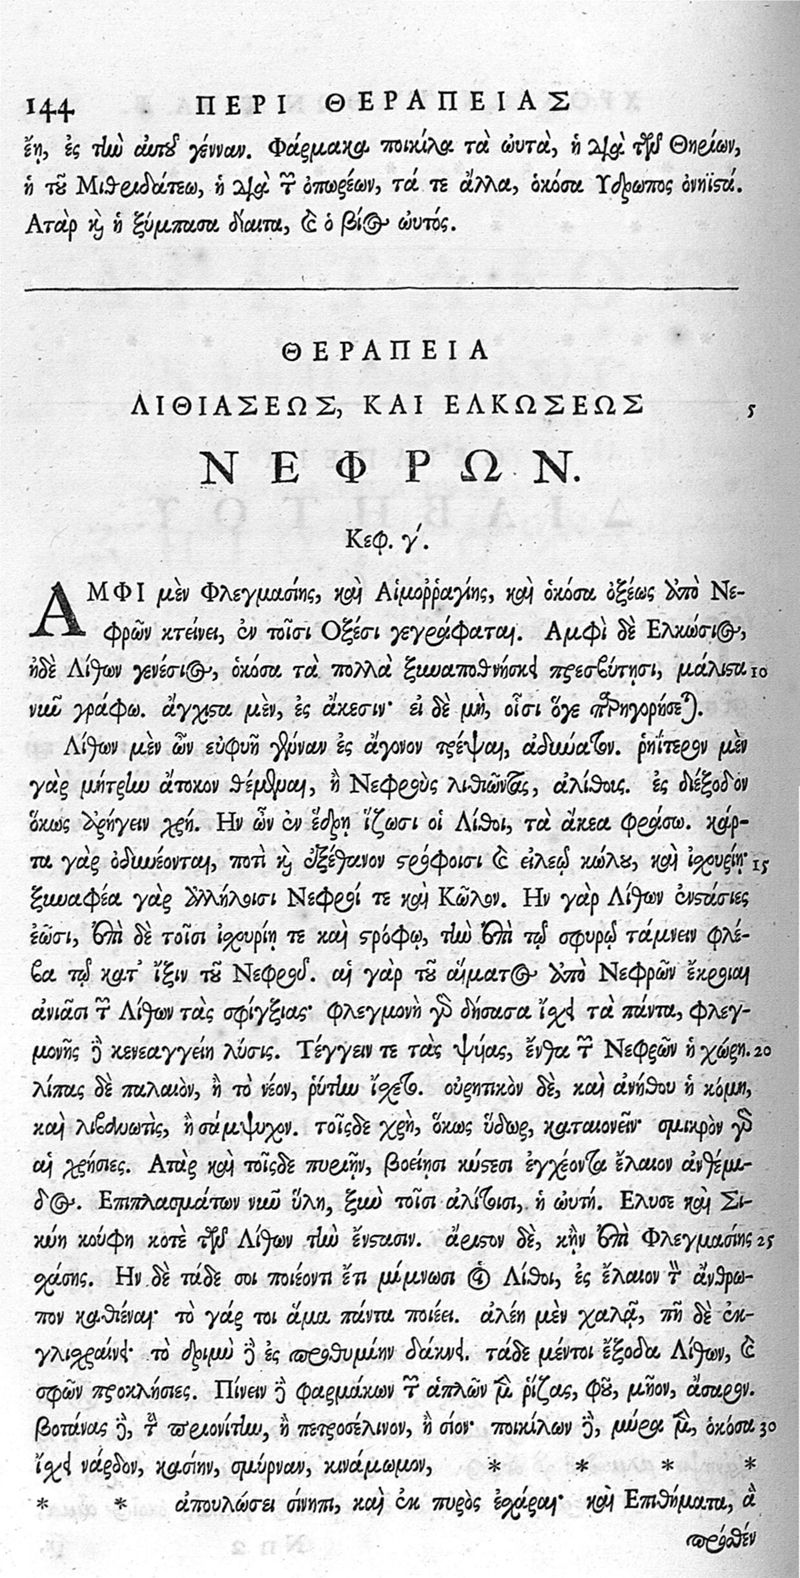 144 ΠΕΡΙ ΘΕΡΑΠΕΙΑΣ
ἔῃ, ἐς τὴν αὐτοῦ γένναν. Φάρμακα ποικίλα τὰ ὠυτὰ, ἡ διὰ τῶν Θηρίων,
ἡ τοῦ Μιθριδάτεω, ἡ διὰ τῶν ὀπωρέων, τά τε ἄλλα, ὁκόσα Υδρωπος ὀνηϊστά.
Αταρ καὶ ἡ ξύμπασα δίαιτα, καὶ ὁ βίος ὠυτός.
ΘΕΡΑΠΕΙΑ
ΛΙΘΙΑΣΕΩΣ, ΚΑΙ ΕΛΚΩΣΕΩΣ 5
ΝΕΦΡΩΝ.
Κεφ. γ΄.
ΑΜΦΙ μὲν Φλεγμασίης, καὶ Αἱμοῤῥαγίης, καὶ ὁκόσα ὀξέως ὑπὸ Νε-
φρῶν κτείνει, ἐν τοῖσι Οξέσι γεγράφαται. Αμφὶ δὲ Ελκώσιος,
ἠδὲ Λίθων γενέσιος, ὁκόσα τὰ πολλὰ ξυναποθνήσκει πρεσβύτῃσι, μάλιστα 10
νῦν γράφω. ἄγχιστα μὲν, ἐς ἄκεσιν· εἰ δὲ μὴ, οἷσι ὅγε παρηγορήσεται.
Λίθων μὲν ὦν εὐφυῆ γύναν ἐς ἄγονον τρέψαι, ἀδύνατον. ῥηΐτερον μὲν
γὰρ μήτρην ἄτοκον θέμεναι, ἢ Νεφροὺς λιθιῶντας, ἀλίθοις. ἐς διέξοδον
ὅκως ὑρήγειν χρή. Ην ὦν ἐν ἕδρῃ ἵζωσι οἱ Λίθοι, τὰ ἄκεα φράσω. κάρ-
τα γὰρ ὀδυνέονται, ποτὶ καὶ ὀξέθανον στρόφοισι καὶ εἰλεῷ κώλου, καὶ ἰσχουρίῃ· 15
ξυναφέα γὰρ ἀλλήλοισι Νεφροί τε καὶ Κῶλον. Ην γὰρ Λίθων ἐνστάσιες
ἔωσι, ἐπὶ δὲ τοῖσι ἰσχουρίη τε καὶ στρόφῳ, τὴν ἐπὶ τῷ σφυρῷ τάμνειν φλέ-
βα τῷ κατ᾽ ἴξιν τοῦ Νεφροῦ. αἱ γὰρ τοῦ αἵματος ὑπὸ Νεφρῶν ἔκροιαι
ἀνιᾶσι τῶν Λίθων τὰς σφίγξιας· φλεγμονὴ γὰρ δήσασα ἴσχει τὰ πάντα, φλεγ-
μονῆς δὲ κενεαγγείη λύσις. Τέγγειν τε τὰς ψύας, ἔνθα τῶν Νεφρῶν ἡ χώρη. 20
λίπας δὲ παλαιὸν, ἢ τὸ νέον, ῥύτην ἴσχετω. οὐρητικὸν δὲ, καὶ ἀνήθου ἡ κόμη,
καὶ λιβανωτὶς, ἢ σάμψυχον. τοῖςδε χρὴ, ὅκως ὕδωρ, καταιονεῖν· σμικρὸν γὰρ
αἱ χρήσιες. Αταρ καὶ τοῖςδε πυριῇν, βοείῃσι κύστεσι ἐγχέοντα ἔλαιον ἀνθέμι-
δος. Επιπλασμάτων νῦν ὕλη, ξὺν τοῖσι ἀλίτοισι, ἡ ὠυτή. Ελυσε καὶ Σι-
κύη κούφη κοτὲ τῶν Λίθων τὴν ἔνστασιν. ἄριστον δὲ, κἢν ἐπὶ Φλεγμασίης 25
σχάσῃς. Ην δὲ τάδε σοι ποιέοντι ἔτι μίμνωσι οἱ Λίθοι, ἐς ἔλαιον τὸν ἄνθρω-
πον καθιέναι· τὸ γάρ τοι ἅμα πάντα ποιέει. ἀλέη μὲν χαλᾷ, πῆ δὲ ἐκ-
γλισχραίνει· τὸ δριμὺ δὲ ἐς προθυμίην δάκνει. τάδε μέντοι ἔξοδα Λίθων, καὶ
σφῶν προκλήσιες. Πίνειν δὲ φαρμάκων τῶν ἁπλῶν μὲν ῥίζας, φοῦ, μῆον, ἄσαρον.
βοτάνας δὲ, τὴν πριονίτην, ἢ πετροσέλινον, ἢ σίον· ποικίλων δὲ, μύρα μὲν, ὁκόσα 30
ἴσχει νάρδον, κασίην, σμύρναν, κινάμωμον, * * * *
* * ἀπουλώσει σίνηπι, καὶ ἐκ πυρὸς ἐσχάραι· καὶ Επιθήματα, ἃ
πρόσθεν